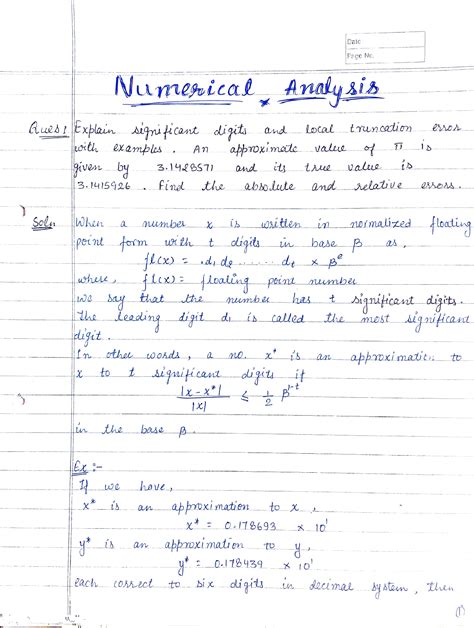 Date
Page No.
Numerical Analysis
Ques 1 Explain significant digits and local truncation error
with examples. An approximate value of π is
given by 3.1428571 and its true value is
3.1415926. Find the absolute and relative errors.
Soln When a number x is written in normalized floating
point form with t digits in base β as,
fl(x) = .d₁ d₂ ...... dₜ × βᵉ
where, fl(x) = floating point number
we say that the number has t significant digits.
The leading digit d₁ is called the most significant
digit.
In other words, a no. x* is an approximation to
x to t significant digits if
|x - x*| / |x| ≤ 1/2 β¹⁻ᵗ
in the base β.
Ex :-
If we have,
x* is an approximation to x,
x* = 0.178693 × 10¹
y* is an approximation to y,
y* = 0.178439 × 10¹
each correct to six digits in decimal system, then
(1)